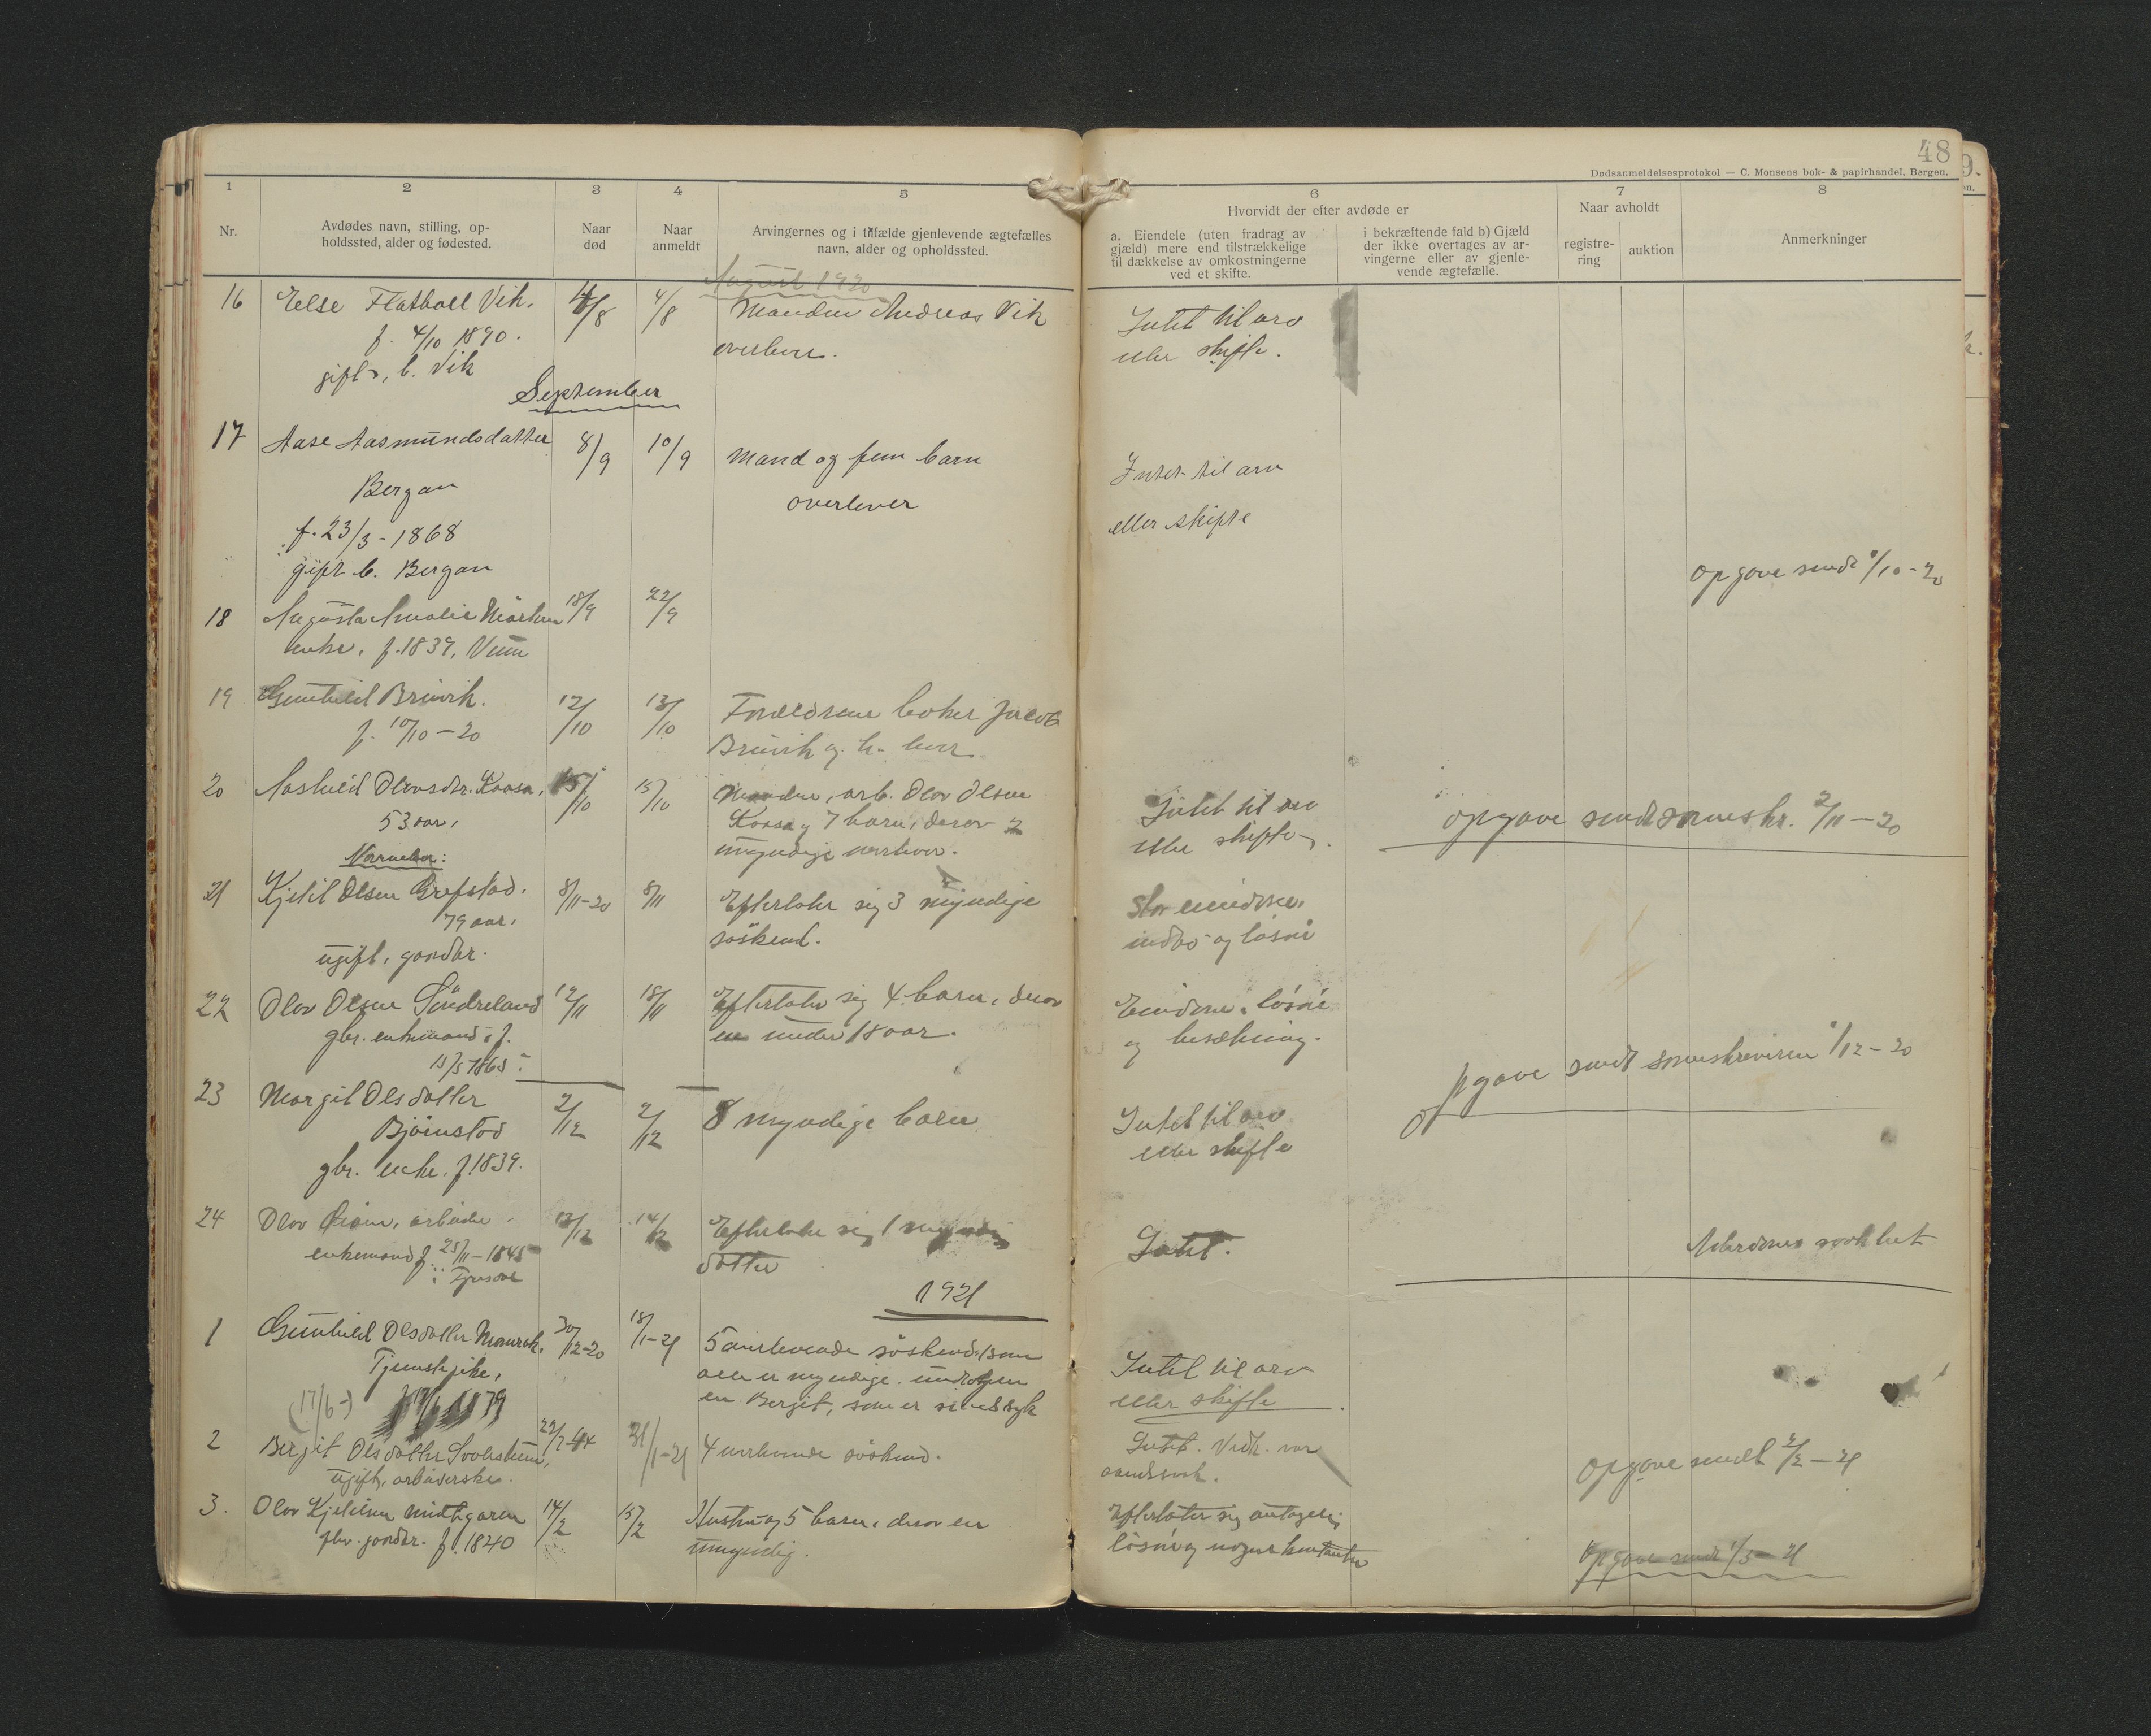 48
Dødsanmeldelsesprotokol — C. Monsens bok- & papirhandel, Bergen.
1
2
3
4
5
6
7
8
Nr.
Avdødes navn, stilling, op-
holdssted, alder og fødested.
Naar
død
Naar
anmeldt
Arvingernes og i tilfælde gjenlevende ægtefælles
navn, alder og opholdssted.
Hvorvidt der efter avdøde er
a. Eiendele (uten fradrag av
gjæld) mere end tilstrækkelige
til dækkelse av omkostningerne
ved et skifte.
i bekræftende fald b) Gjæld
der ikke overtages av ar-
vingerne eller av gjenle-
vende ægtefælle.
Naar avholdt
registre-
ring
auktion
Anmerkninger
August 1920
16 Else Flatboll Vik. 4/8 4/8 Manden Andreas Vik Intet til arv
f. 4/10 1890. overlever. eller skifte.
gift, b. Vik
September
17 Aase Aasmundsdatter 8/9 10/9 Mand og fem barn Intet til arv
Bergan overlever eller skifte
f. 23/3 - 1868
gift b. Bergan
Opgave sendt 1/10 - 20
18 Augusta Amalie 18/9 22/9
enke, f. 1839,
19 Gunhild Bruvik. 12/10 13/10 Forældrene baker Jacob
f. 10/10 - 20 Bruvik og h. lever
20 Aashild Olavsdtr. Kaasa, 15/10 15/10 Manden, arb. Olav Olsen Intet til arv
53 aar, Kaasa og 7 barn, derav 2 eller skifte
umyndige overlever.
opgave sendt sorenskr. 2/11 - 20
November:
21 Kjetil Olsen Grefstad. 8/11-20 8/11 Efterlater sig 3 myndige
79 aar, søskend.
ugift, gardbr.
indbo og løsøre
22 Olav Olsen Sundreland 12/11 18/11 Efterlater sig 4 barn, derav Eiendom, løsøre
gbr. enkemand, f. en under 18 aar. og besætning.
15/5 1865
opgave sendt sorenskriveren 1/12 - 20
23 Margit Olsdatter 2/12 2/12 8 myndige barn Intet til arv
Bjørnstad eller skifte
gbr. enke. f. 1839.
24 Olav arbeider 13/12 14/12 Efterlater sig 1 myndig Intet.
enkemand f. 25/11 - 1845 datter
1921
1 Gunhild Olsdatter 30/12-20 18/1-21 5 overlevende søskend, som Intet til arv
Tjenestepike, alle er myndige undtagen eller skifte
17/6 1879 en Bergit, som er sindssyk
(17/6)
2 Bergit Olsdatter 31/1-21 4 overlevende søskend. Intet. Vedk. var
ugift, arbeiderske. sindssvak.
opgave sendt 2/2 - 21
3. Olav Kjetilsen Midtgaren 14/2 15/2 Hustru og 5 barn, derav en Efterlater sig antagelig
fhv. gardbr. f. 1840 umyndig. løsøre og nogen kontanter
opgave sendt 1/3 - 21